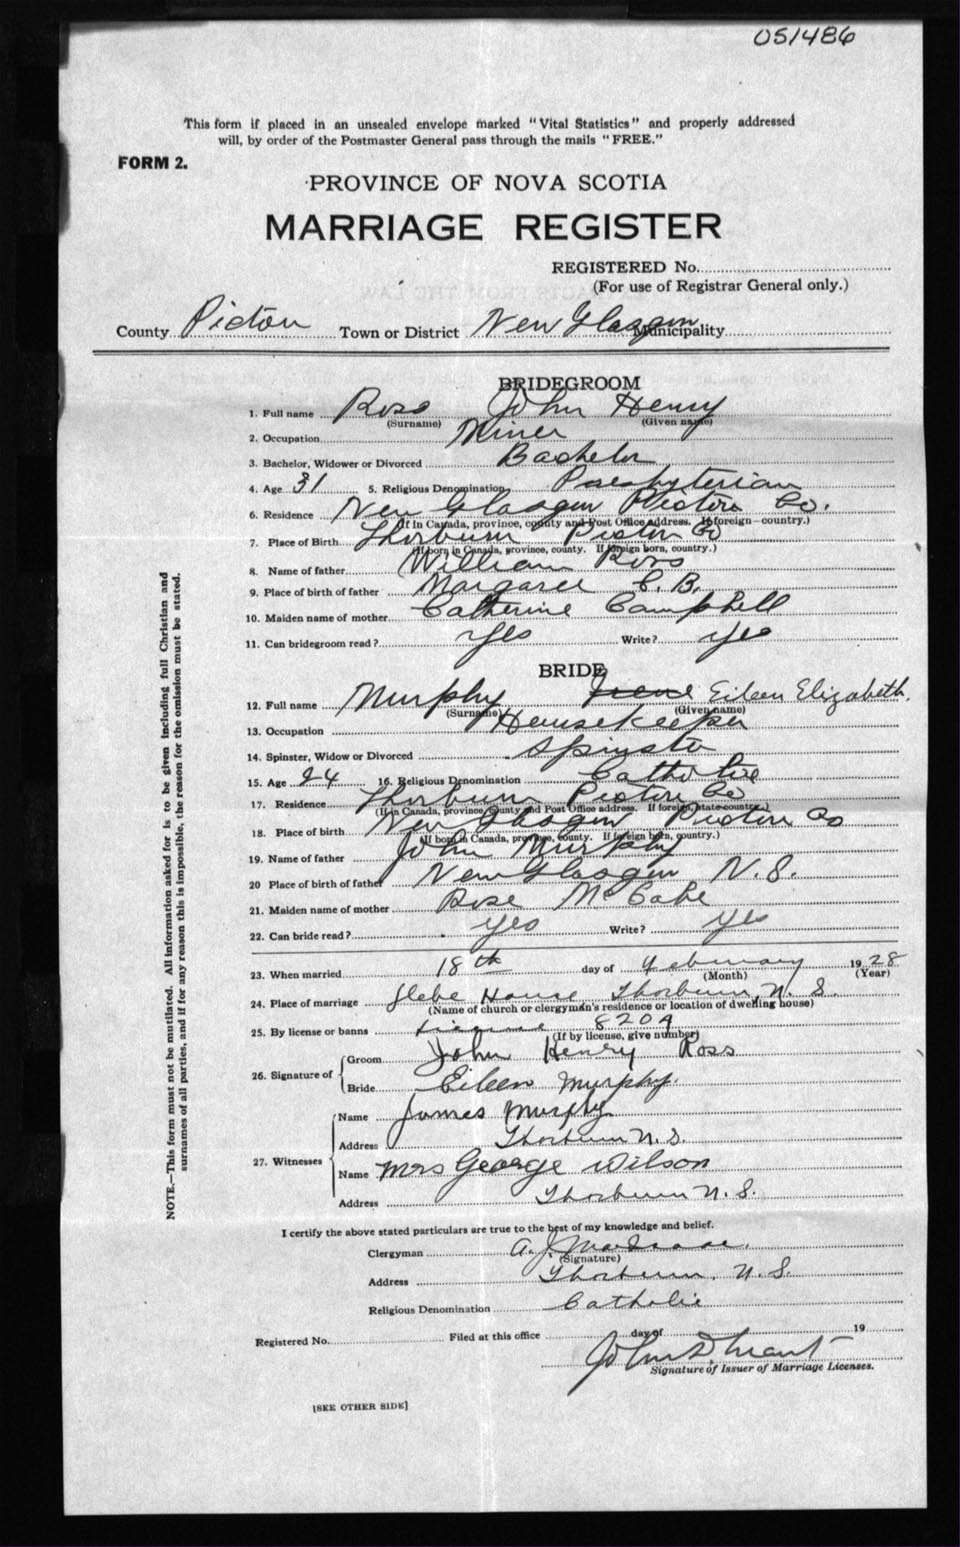 051486
This form if placed in an unsealed envelope marked "Vital Statistics" and properly addressed
will, by order of the Postmaster General pass through the mails "FREE."
FORM 2.
PROVINCE OF NOVA SCOTIA
MARRIAGE REGISTER
REGISTERED No.
(For use of Registrar General only.)
County Pictou Town or District New Glasgow Municipality
BRIDEGROOM
1. Full name Ross John Henry
(Surname) (Given name)
2. Occupation Miner
3. Bachelor, Widower or Divorced Bachelor
4. Age 31 5. Religious Denomination Presbyterian
6. Residence New Glasgow Pictou Co.
(If in Canada, province, county and Post Office address. If foreign—country.)
7. Place of Birth Thorburn Pictou Co
(If born in Canada, province, county. If foreign born, country.)
8. Name of father William Ross
9. Place of birth of father Margaree C.B.
10. Maiden name of mother Catherine Campbell
11. Can bridegroom read? Yes Write? Yes
BRIDE
12. Full name Murphy Irene Eileen Elizabeth.
(Surname) (Given name)
13. Occupation Housekeeper
14. Spinster, Widow or Divorced Spinster
15. Age 24 16. Religious Denomination Catholic
17. Residence Thorburn Pictou Co
(If in Canada, province, county and Post Office address. If foreign, state country.)
18. Place of birth New Glasgow Pictou Co
(If born in Canada, province, county. If foreign born, country.)
19. Name of father John Murphy
20 Place of birth of father New Glasgow N.S.
21. Maiden name of mother Rose McCabe
22. Can bride read? yes Write? yes
23. When married 18th day of February 1928
(Month) (Year)
24. Place of marriage Glebe House Thorburn, N.S.
(Name of church or clergyman's residence or location of dwelling house)
25. By license or banns License 8209
(If by license, give number)
26. Signature of Groom John Henry Ross
Bride Eileen Murphy.
27. Witnesses Name James Murphy
Address Thorburn N.S.
Name Mrs George Wilson
Address Thorburn N.S.
I certify the above stated particulars are true to the best of my knowledge and belief.
Clergyman A. J.
(Signature)
Address Thorburn, N.S.
Religious Denomination Catholic
Registered No. Filed at this office day of 19
John D
Signature of Issuer of Marriage Licenses.
[SEE OTHER SIDE]
NOTE.—This form must not be mutilated. All information asked for is to be given including full Christian and
surnames of all parties, and if for any reason this is impossible, the reason for the omission must be stated.